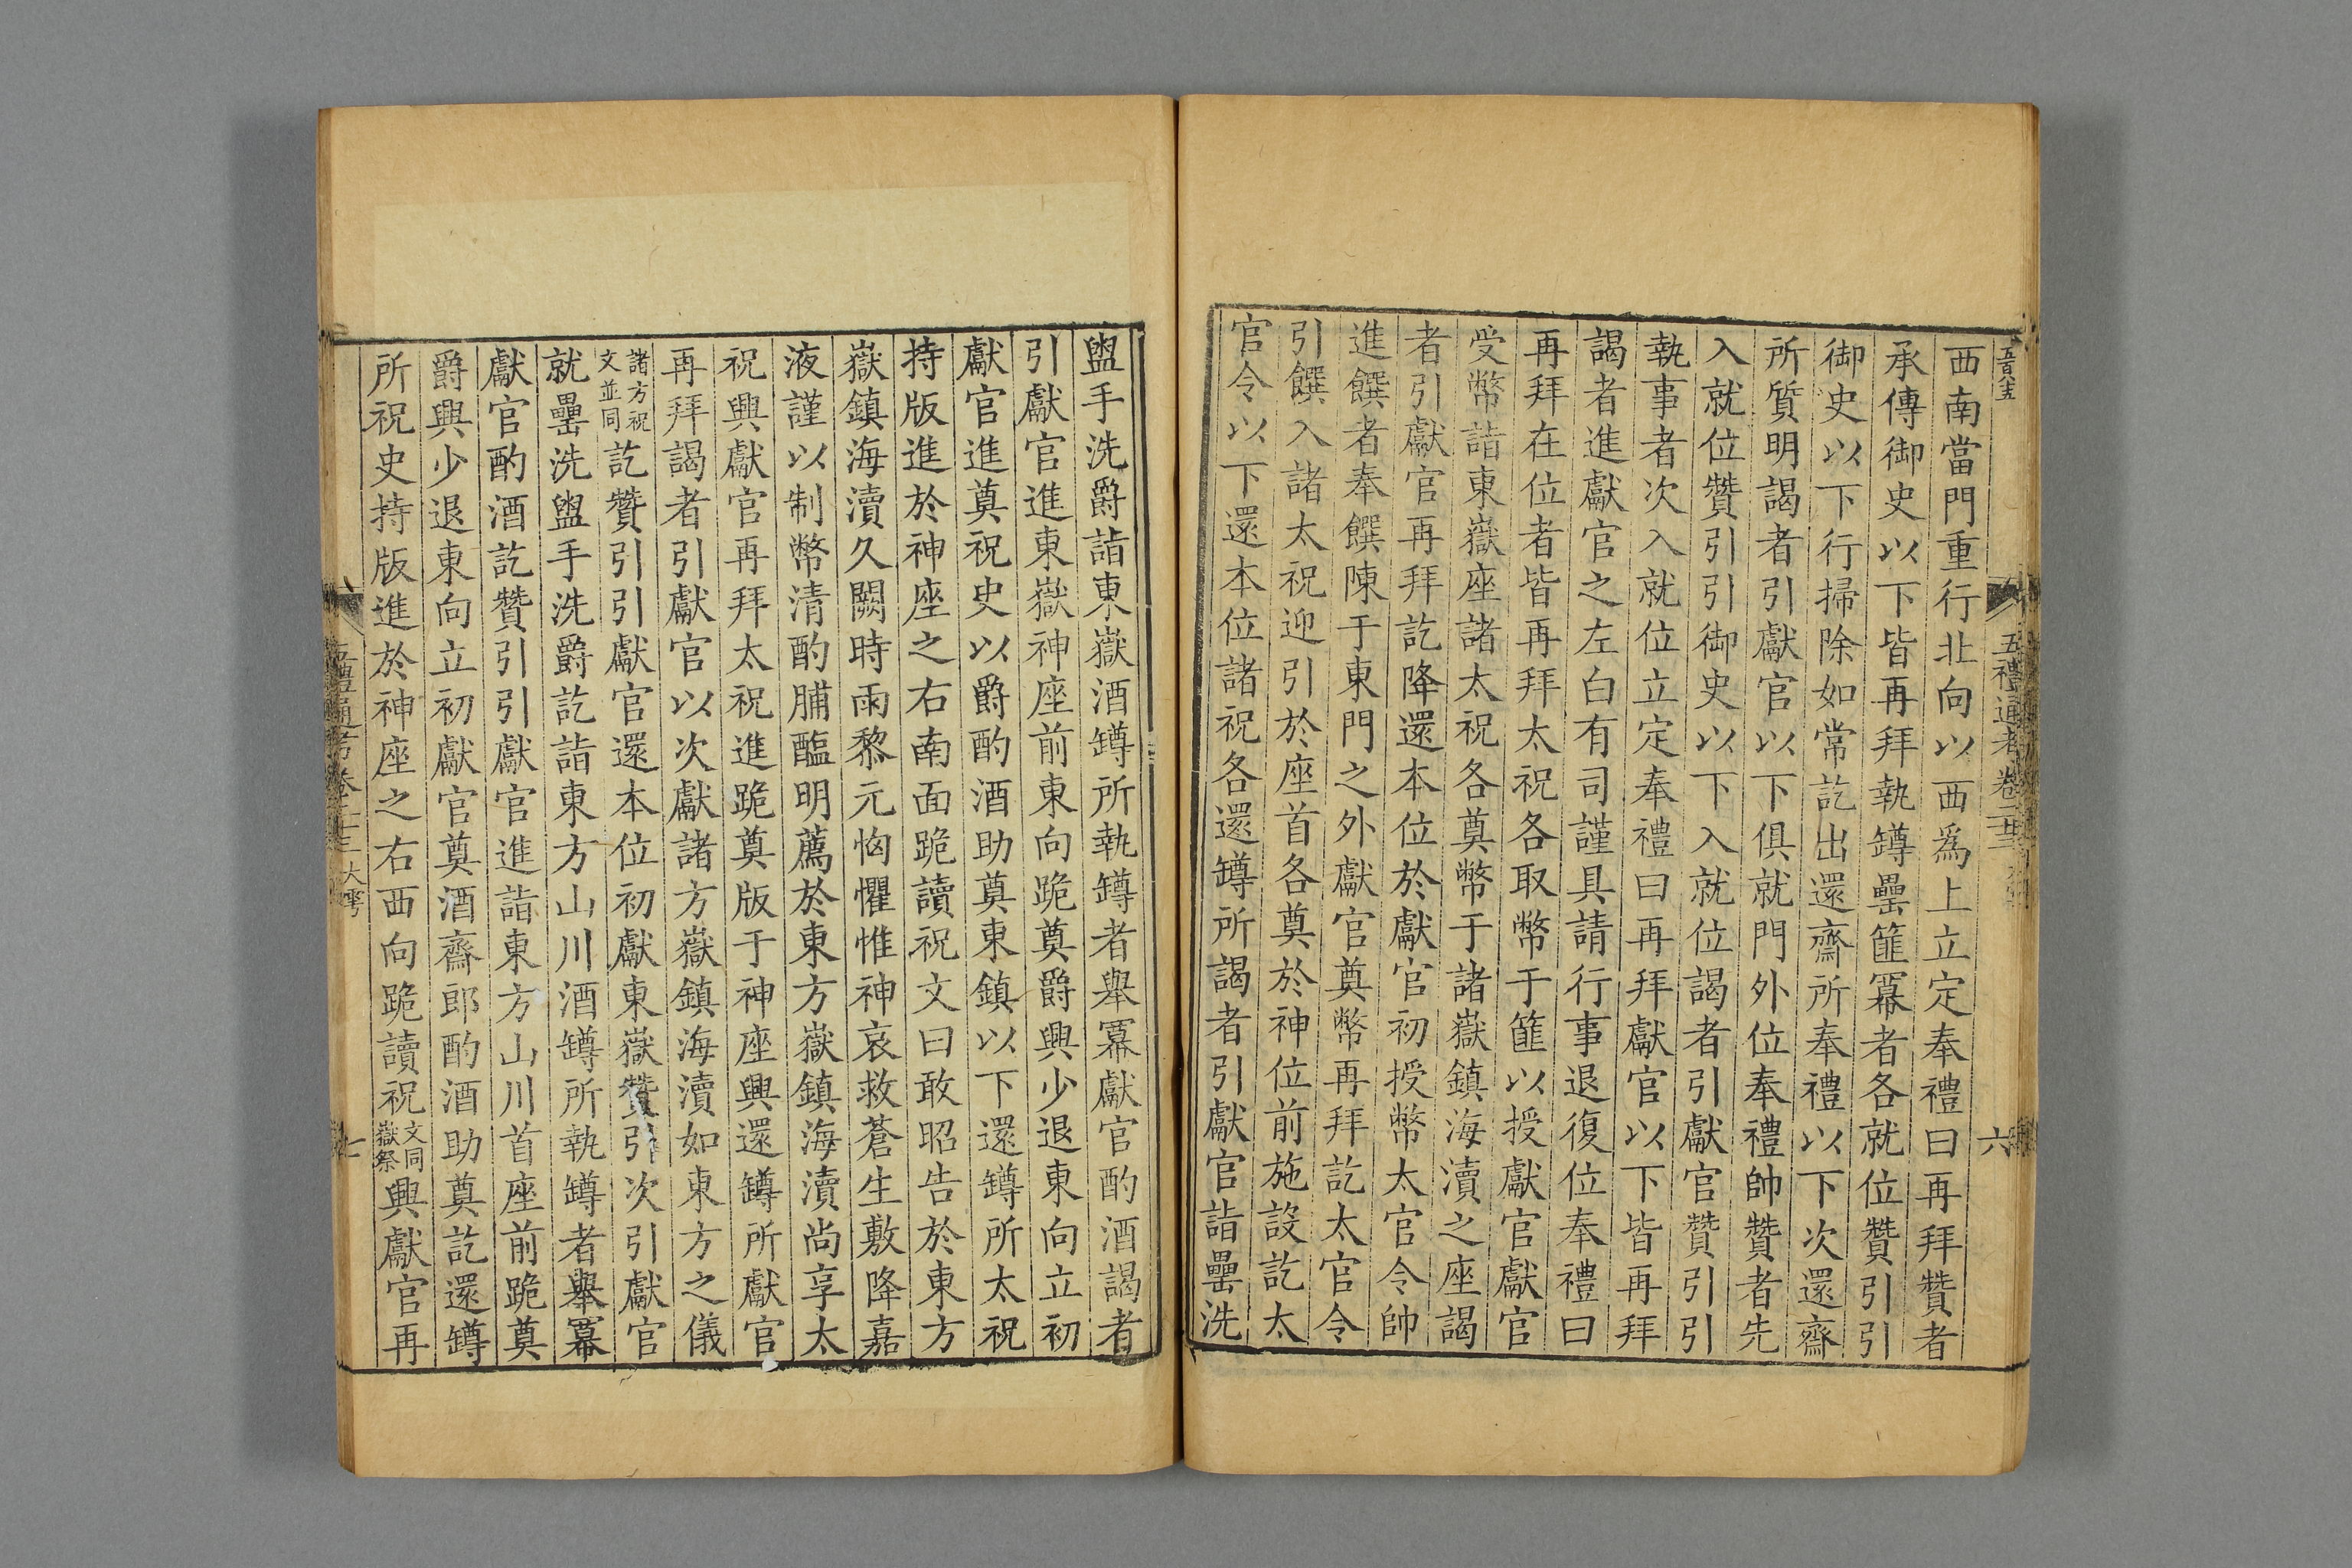 五禮通考卷二十二
六
西南當門重行北向以西爲上立定奉禮曰再拜贊者
承傳御史以下皆再拜執罇罍篚冪者各就位贊引引
御史以下行掃除如常訖出還齋所奉禮以下次還齋
所質明謁者引獻官以下俱就門外位奉禮帥贊者先
入就位贊引引御史以下入就位謁者引獻官贊引引
執事者次入就位立定奉禮曰再拜獻官以下皆再拜
謁者進獻官之左白有司謹具請行事退復位奉禮曰
再拜在位者皆再拜太祝各取幣于篚以授獻官獻官
受幣詣東嶽座諸太祝各奠幣于諸嶽鎮海瀆之座謁
者引獻官再拜訖降還本位於獻官初授幣太官令帥
進饌者奉饌陳于東門之外獻官奠幣再拜訖太官令
引饌入諸太祝迎引於座首各奠於神位前施設訖太
官令以下還本位諸祝各還罇所謁者引獻官詣罍洗
盥手洗爵詣東嶽酒罇所執罇者舉冪獻官酌酒謁者
引獻官進東嶽神座前東向跪奠爵興少退東向立初
獻官進奠祝史以爵酌酒助奠東鎮以下還罇所太祝
持版進於神座之右南面跪讀祝文曰敢昭告於東方
嶽鎮海瀆久闕時雨黎元恟懼惟神哀救蒼生敷降嘉
液謹以制幣清酌脯醢明薦於東方嶽鎮海瀆尚享太
祝興獻官再拜太祝進跪奠版于神座興還罇所獻官
再拜謁者引獻官以次獻諸方嶽鎮海瀆如東方之儀
諸方祝文並同訖贊引引獻官還本位初獻東嶽贊引次引獻官
就罍洗盥手洗爵訖詣東方山川酒罇所執罇者舉冪
獻官酌酒訖贊引引獻官進詣東方山川首座前跪奠
爵興少退東向立初獻官奠酒齋郎酌酒助奠訖還罇
所祝史持版進於神座之右西向跪讀祝文同嶽祭興獻官再
五禮通考卷二十二 大雩
七